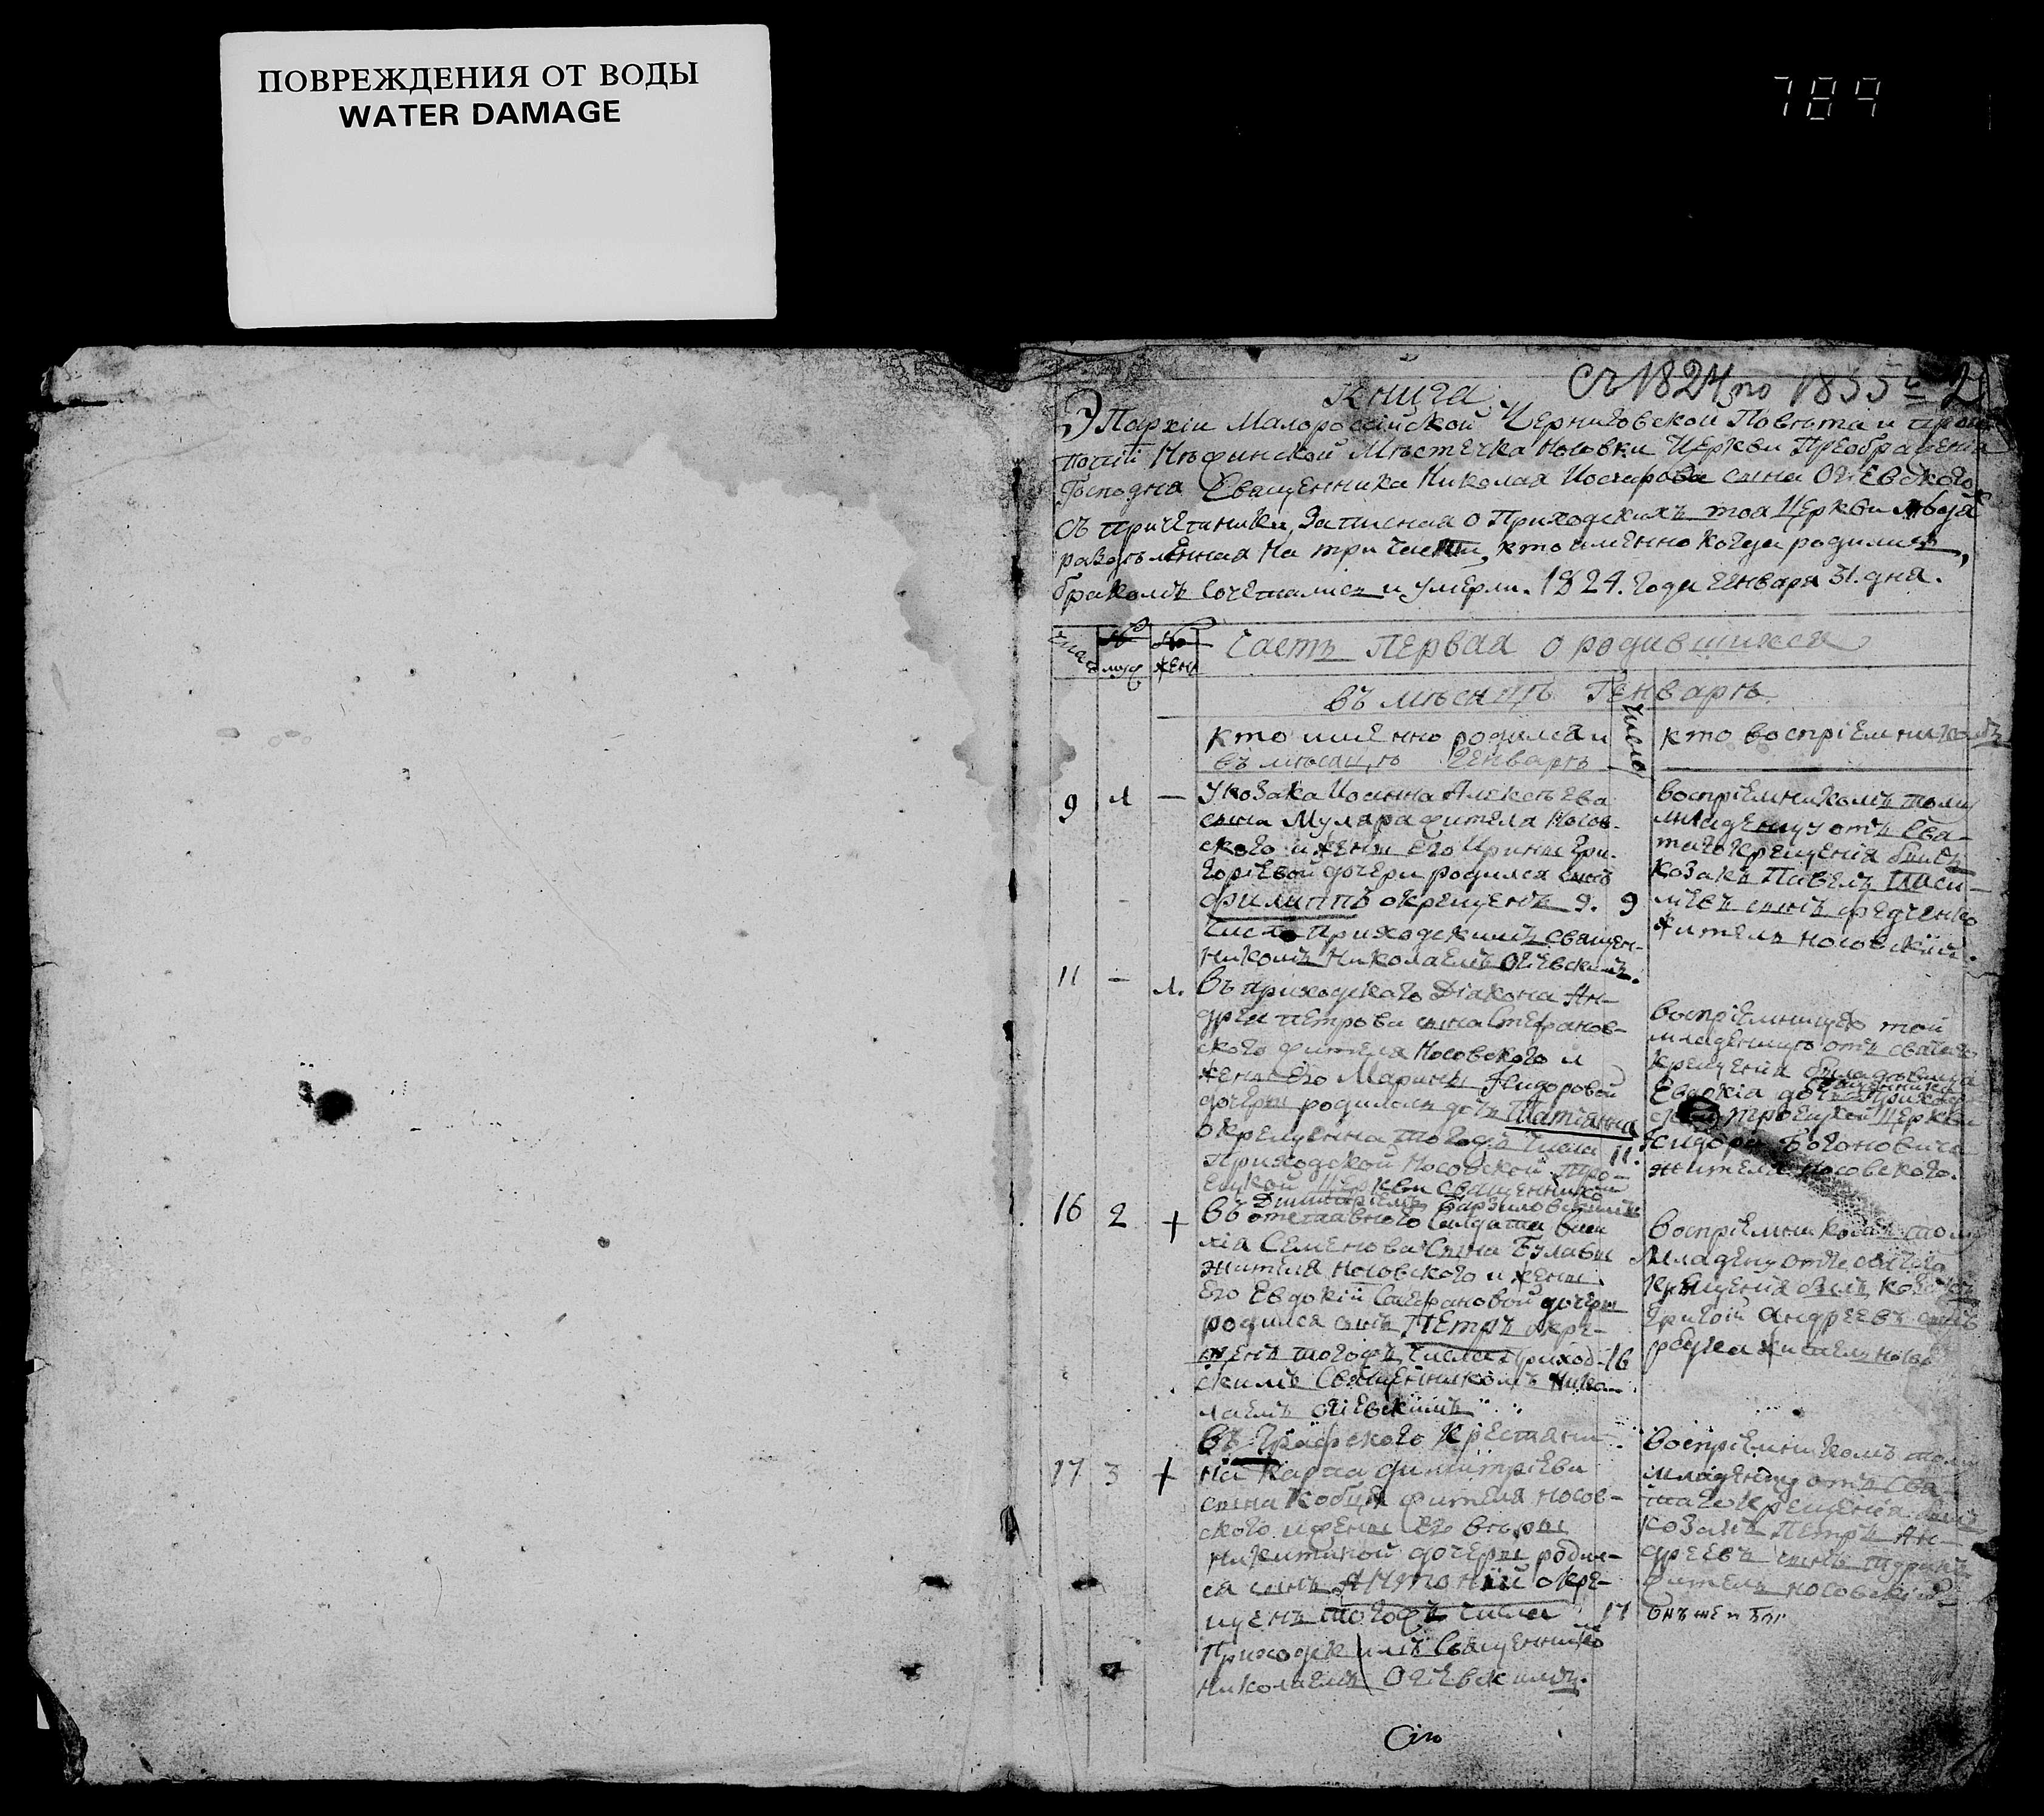 ПОВРЕЖДЕНИЯ ОТ ВОДЫ
WATER DAMAGE
789
Съ 1824 по 1835 2
Книга
Эпархіи Малоросійской Черниговской Повѣта и
Нѣжинской Мѣстечка Носовки Церкви Преображенія
Господня Священника Николая сына Огіевского
съ причетники, Записная о Приходскихъ тоя Церкви
раздѣленная на три части, кто именно когда родились,
бракомъ сочетались и умерли. 1824. Года Генваря 31. дня.
число № муж № жен Часть Первая о родившихся
въ мѣсяцѣ Генварѣ
кто именно родился и число кто воспріемникомъ
въ мѣсяцѣ Генварѣ
9 1 — У козака Иоанна Алексѣева
сына Муляра жителя Носов-
ского и жены его Ирины Гри-
горіевой дочери родился сынъ
Филиппъ окрещенъ 9. 9
числа Приходскимъ священ-
никомъ Николаемъ Огіевскимъ.
воспріемникомъ тому
младенцу отъ Свя-
таго крещенія былъ
козакъ Павелъ
сынъ Федченко
житель носовскій.
11 — 1. Въ приходского Діакона Ан-
дрея Петрова сына Стефанов-
ского жителя Носовского и
жены его Марины Исидоровой
дочеры родилась дочь Татіанна
окрещенна тогожъ числа 11.
Приходской Носовской Тро-
ецкой Церкви священникомъ
Димитріемъ
воспріемницею той
младенице отъ святаго
крещенія была
Евдокія дочь
Троецкой Церкви
Исидора
жителя носовского.
16 2 + Въ отставного Салдата
Семенова Сына Булавы
жителя Носовского и жены
Его Евдокіи Стефановой дочеры
родился сынъ Петръ окре-
щенъ тогожъ числа Приход- 16
скимъ Священникомъ Нико-
лаемъ Огіевскимъ
воспріемникомъ тому
младенцу отъ святаго
крещенія былъ козакъ
Григорій Андреевъ сынъ
житель
17 3 + Въ Графского Крестяни-
на Карпа Димитріева
сына жителя носов-
ского и жены Его Вѣры
Никитиной дочеры родил-
ся сынъ Антоній окре-
щенъ тогожъ числа 17
Приходскимъ Священнико
Николаемъ Огіевскимъ.
воспріемникомъ тому
младенцу отъ Свя-
таго крещенія былъ
козакъ Петръ Ан-
дреевъ сынъ
житель носовскій